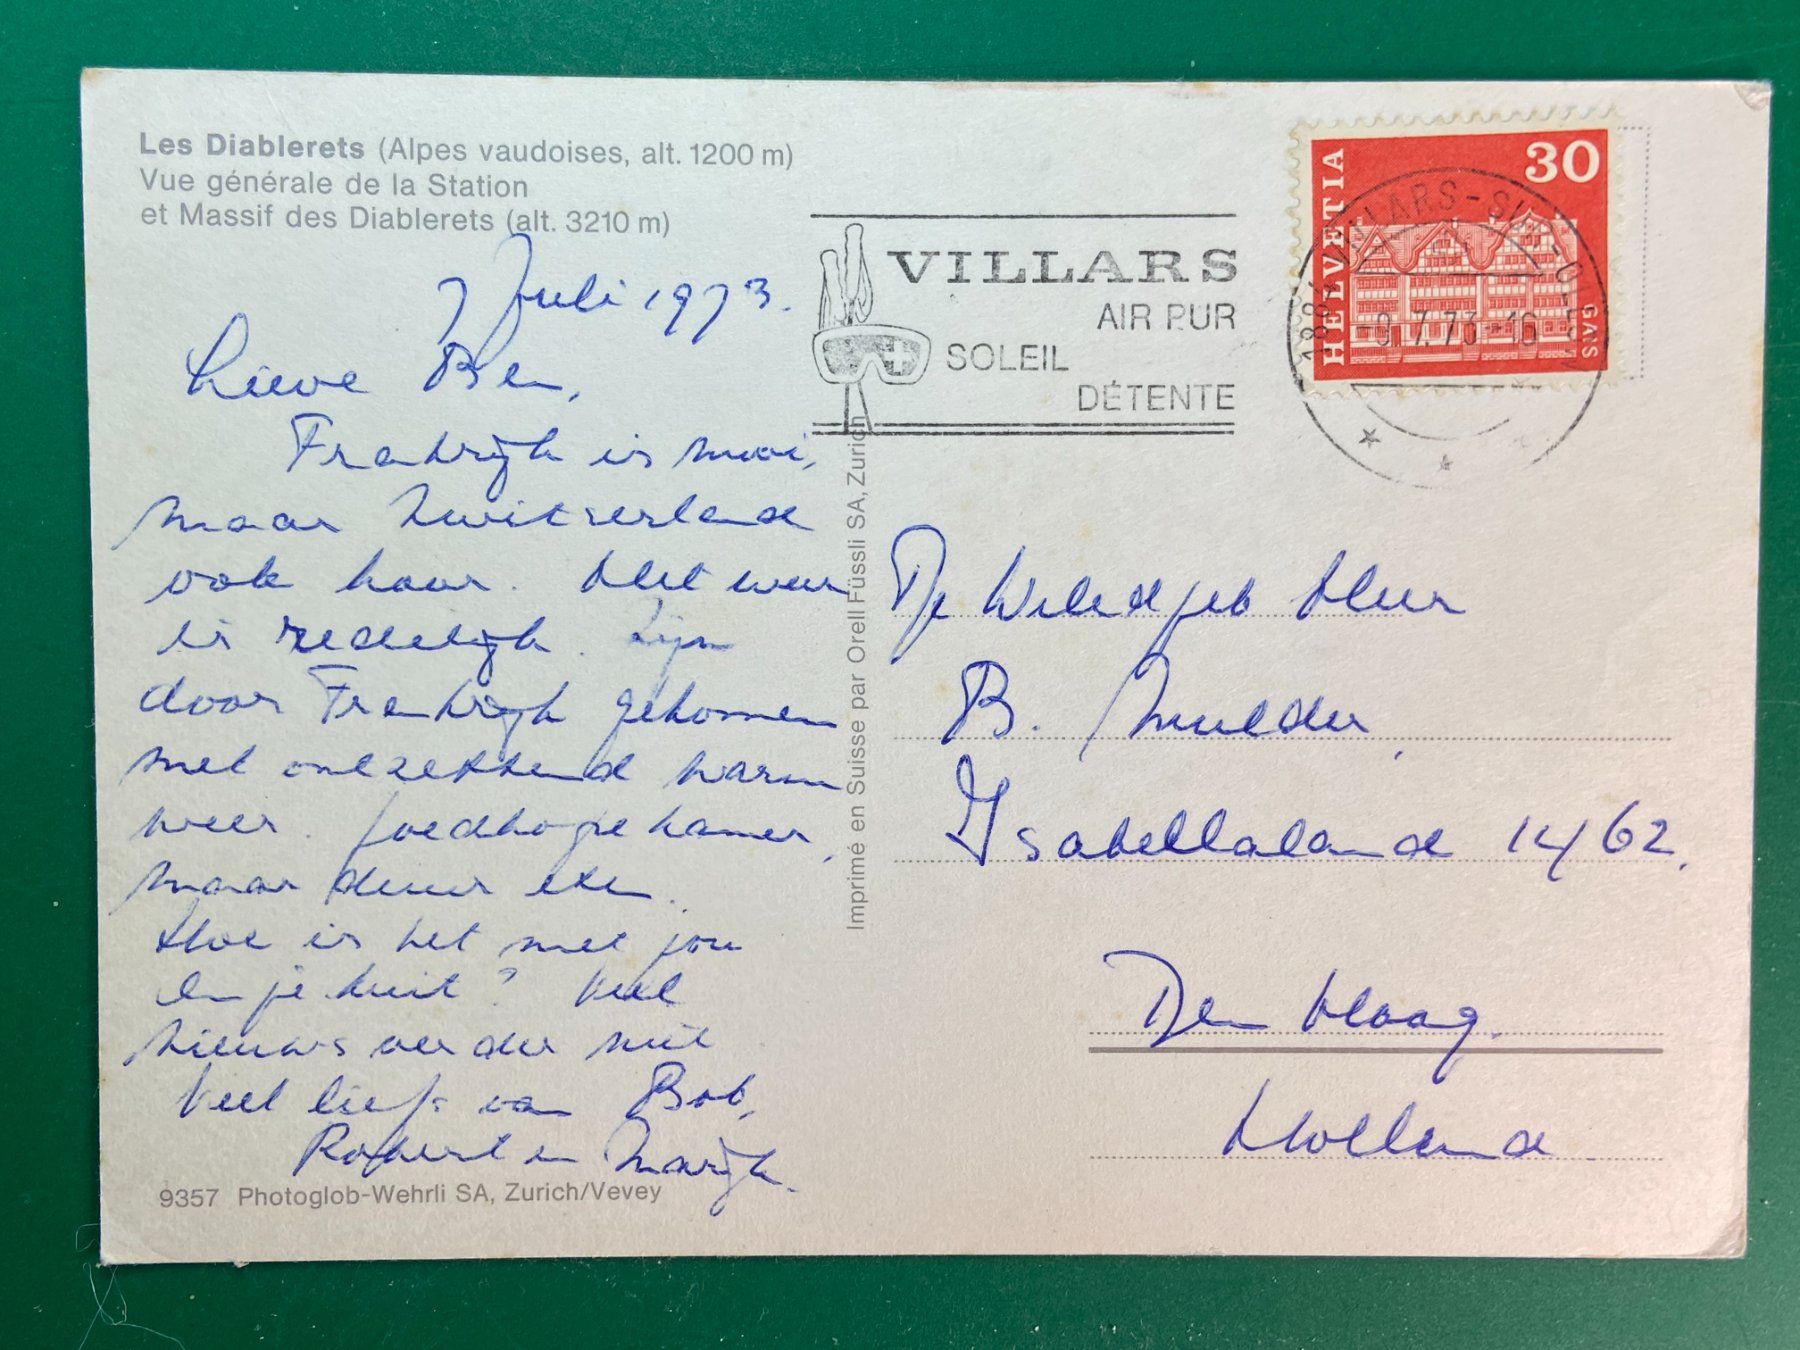 Les Diablerets (Alpes vaudoises, alt. 1200 m)
Vue générale de la Station
et Massif des Diablerets (alt. 3210 m)
7 Juli 1973.
Lieve Ben,
Frankrijk is mooi,
maar Zwitserland
ook hoor. Het weer
is redelijk. Zijn
door Frankrijk gekomen
met ontzettend warm
weer. Goedkope kamer,
maar duur eten.
Hoe is het met jou
en je huit? Veel
nieuws is er niet
Veel liefs van Bob,
Robert en Marijk.
9357 Photoglob-Wehrli SA, Zurich/Vevey
Imprimé en Suisse par Orell Füssli SA, Zurich
VILLARS
AIR PUR
SOLEIL
DÉTENTE
HELVETIA
30
GAIS
1884 VILLARS-SUR-OLLON
-9.7.73-16
De Weledgeb Heer
B. Mulder,
Ysabellaland 1462.
Den Haag.
Holland